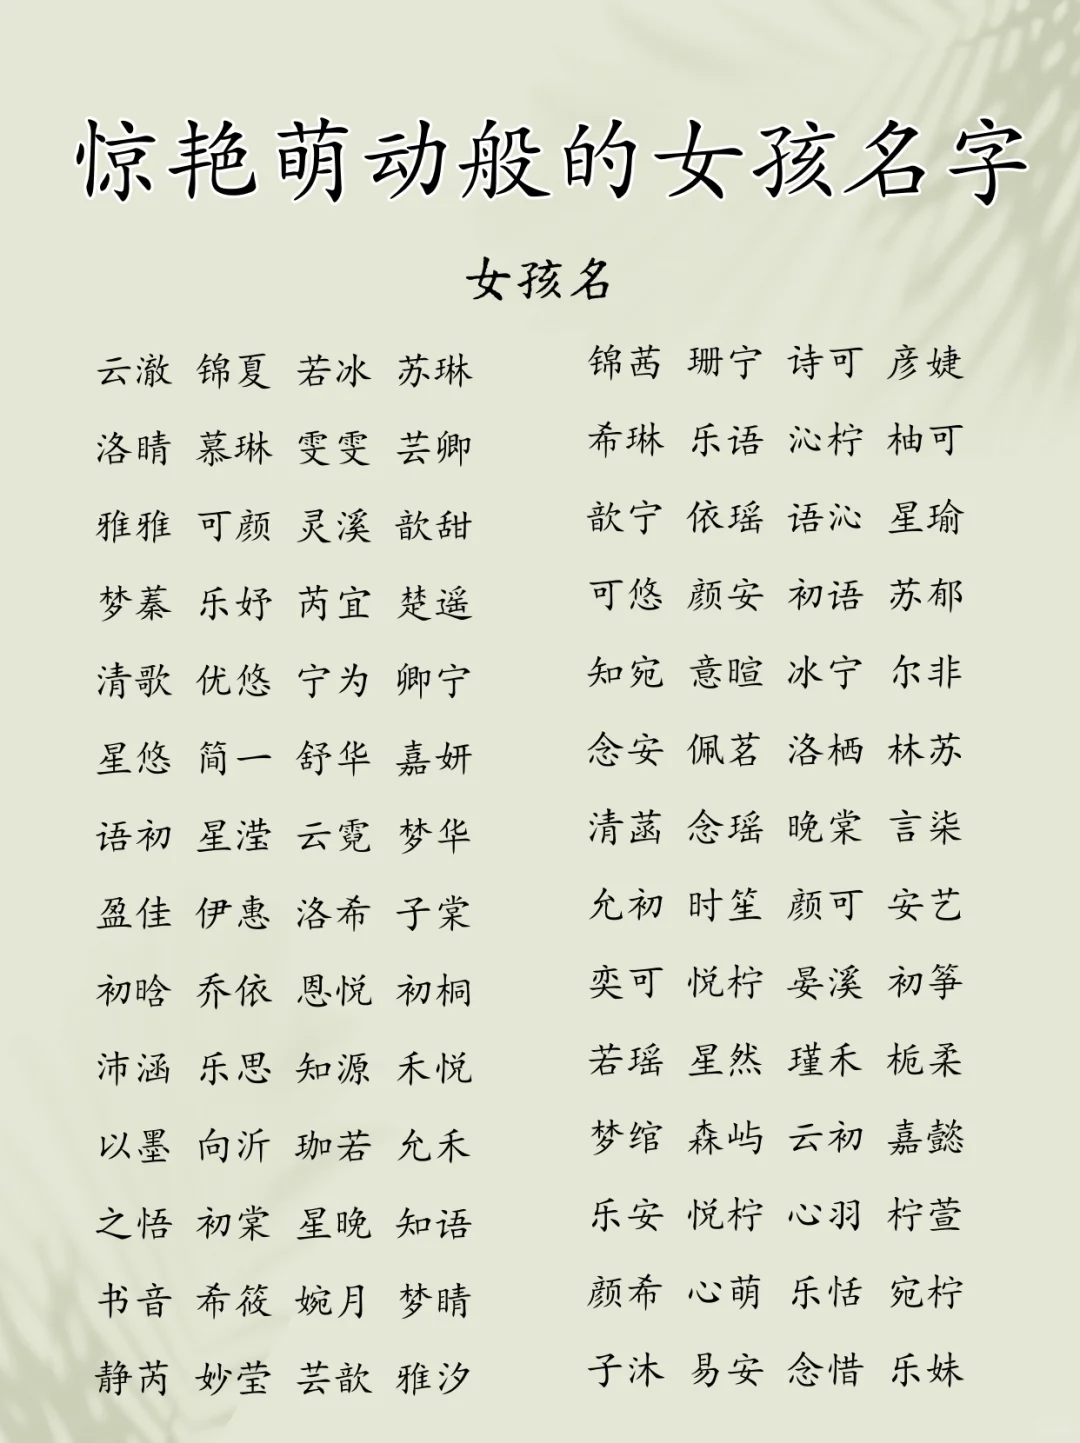 惊艳萌动般的女孩名字
女孩名
云澈 锦夏 若冰 苏琳
洛晴 慕琳 雯雯 芸卿
雅雅 可颜 灵溪 歆甜
梦蓁 乐妤 芮宜 楚遥
清歌 优悠 宁为 卿宁
星悠 简一 舒华 嘉妍
语初 星滢 云霓 梦华
盈佳 伊惠 洛希 子棠
初晗 乔依 恩悦 初桐
沛涵 乐思 知源 禾悦
以墨 向沂 珈若 允禾
之悟 初棠 星晚 知语
书音 希筱 婉月 梦晴
静芮 妙莹 芸歆 雅汐
锦茜 珊宁 诗可 彦婕
希琳 乐语 沁柠 柚可
歆宁 依瑶 语沁 星瑜
可悠 颜安 初语 苏郁
知宛 意暄 冰宁 尔非
念安 佩茗 洛栖 林苏
清菡 念瑶 晚棠 言柒
允初 时笙 颜可 安艺
奕可 悦柠 晏溪 初筝
若瑶 星然 瑾禾 栀柔
梦绾 森屿 云初 嘉懿
乐安 悦柠 心羽 柠萱
颜希 心萌 乐恬 宛柠
子沐 易安 念惜 乐妹